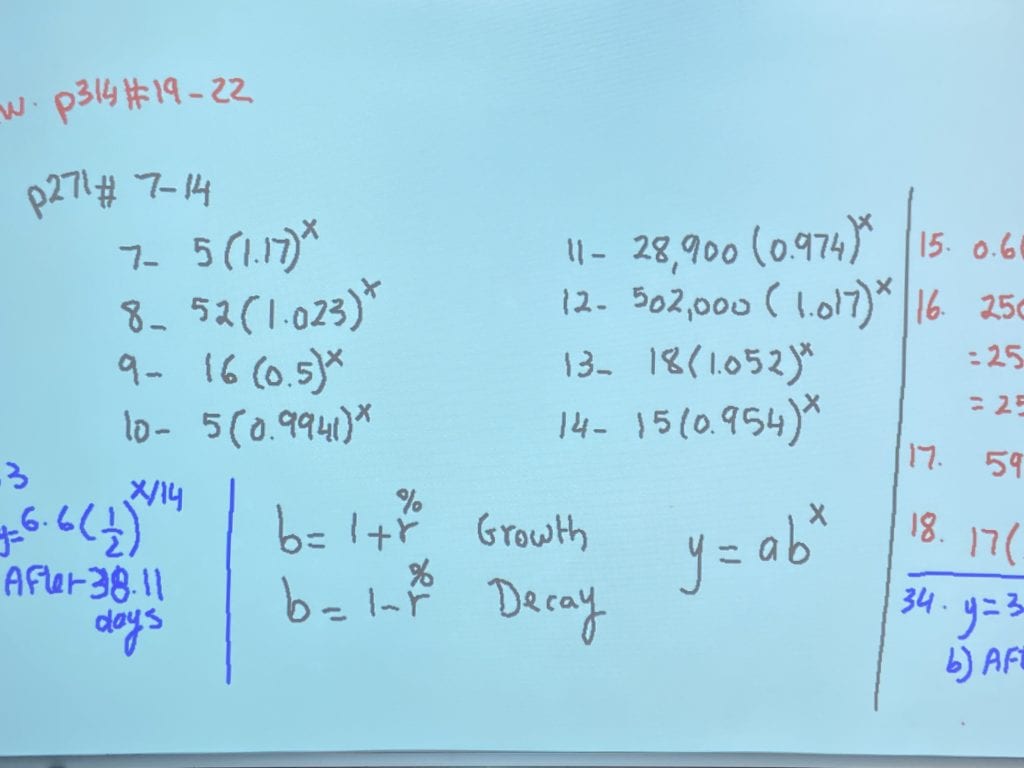 w. p314#19-22
p271# 7-14
7- 5(1.17)^x
8- 52(1.023)^x
9- 16(0.5)^x
10- 5(0.9941)^x
11- 28,900(0.974)^x
12- 502,000(1.017)^x
13- 18(1.052)^x
14- 15(0.954)^x
3
y=6.6(1/2)^x/14
After 38.11
days
b= 1+r% Growth
b= 1-r% Decay
y=ab^x
15. 0.6(
16. 250
=25
=25
17. 59
18. 17(
34. y=3
b) Aft